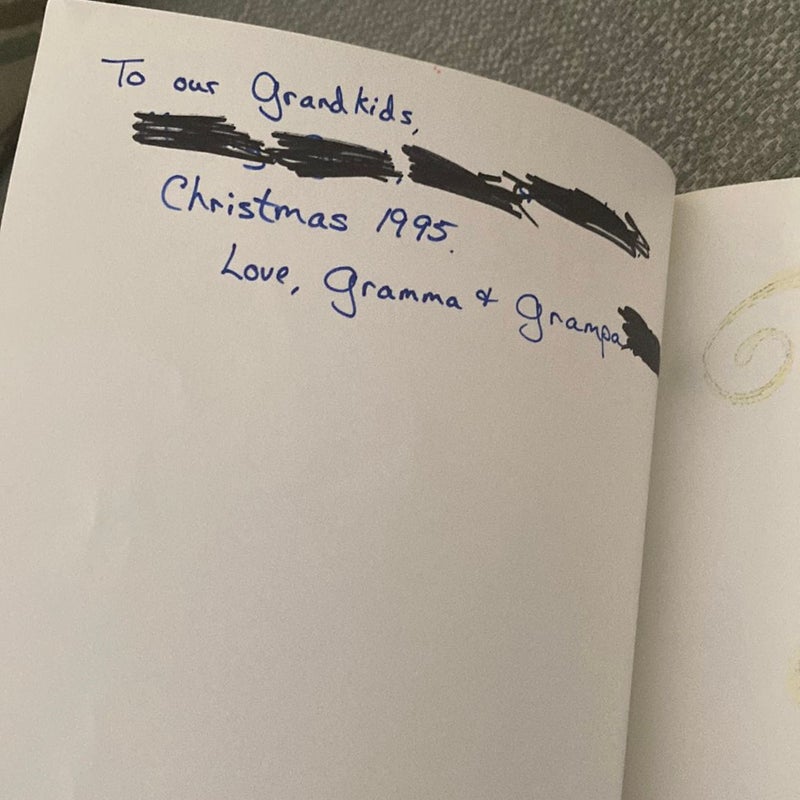 To our Grandkids,
Christmas 1995.
Love, Gramma & Grampa